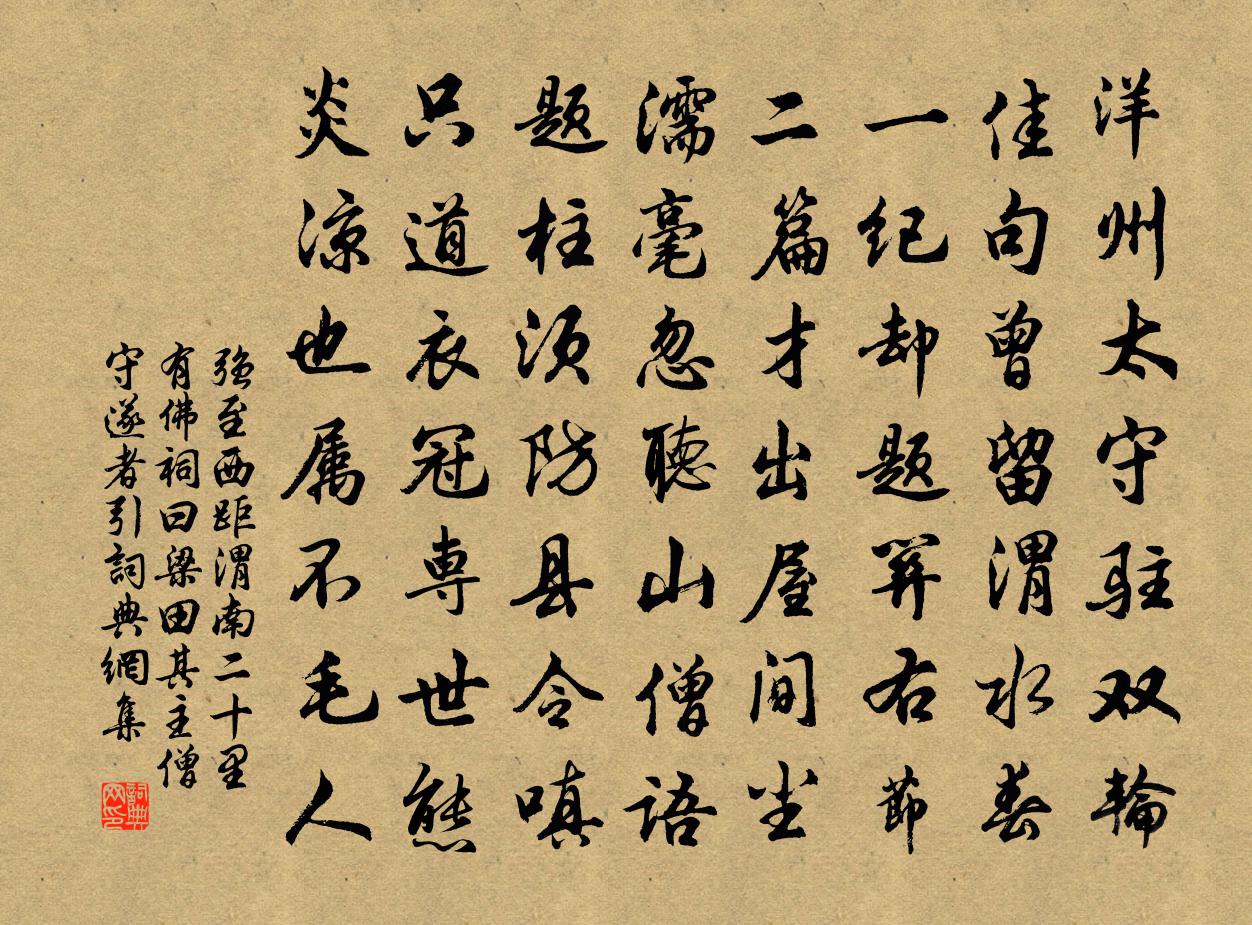 洋州太守駐双輪
佳句曾留渭水春
一纪却题笄右節
二篇才出屋间尘
濡毫忽聽山僧語
题柱须防县令嗔
只道衣冠専世態
炎凉也属不毛人
强至西距渭南二十里
有佛祠曰梁田其主僧
守遂者引詞典網集
詞典
网印